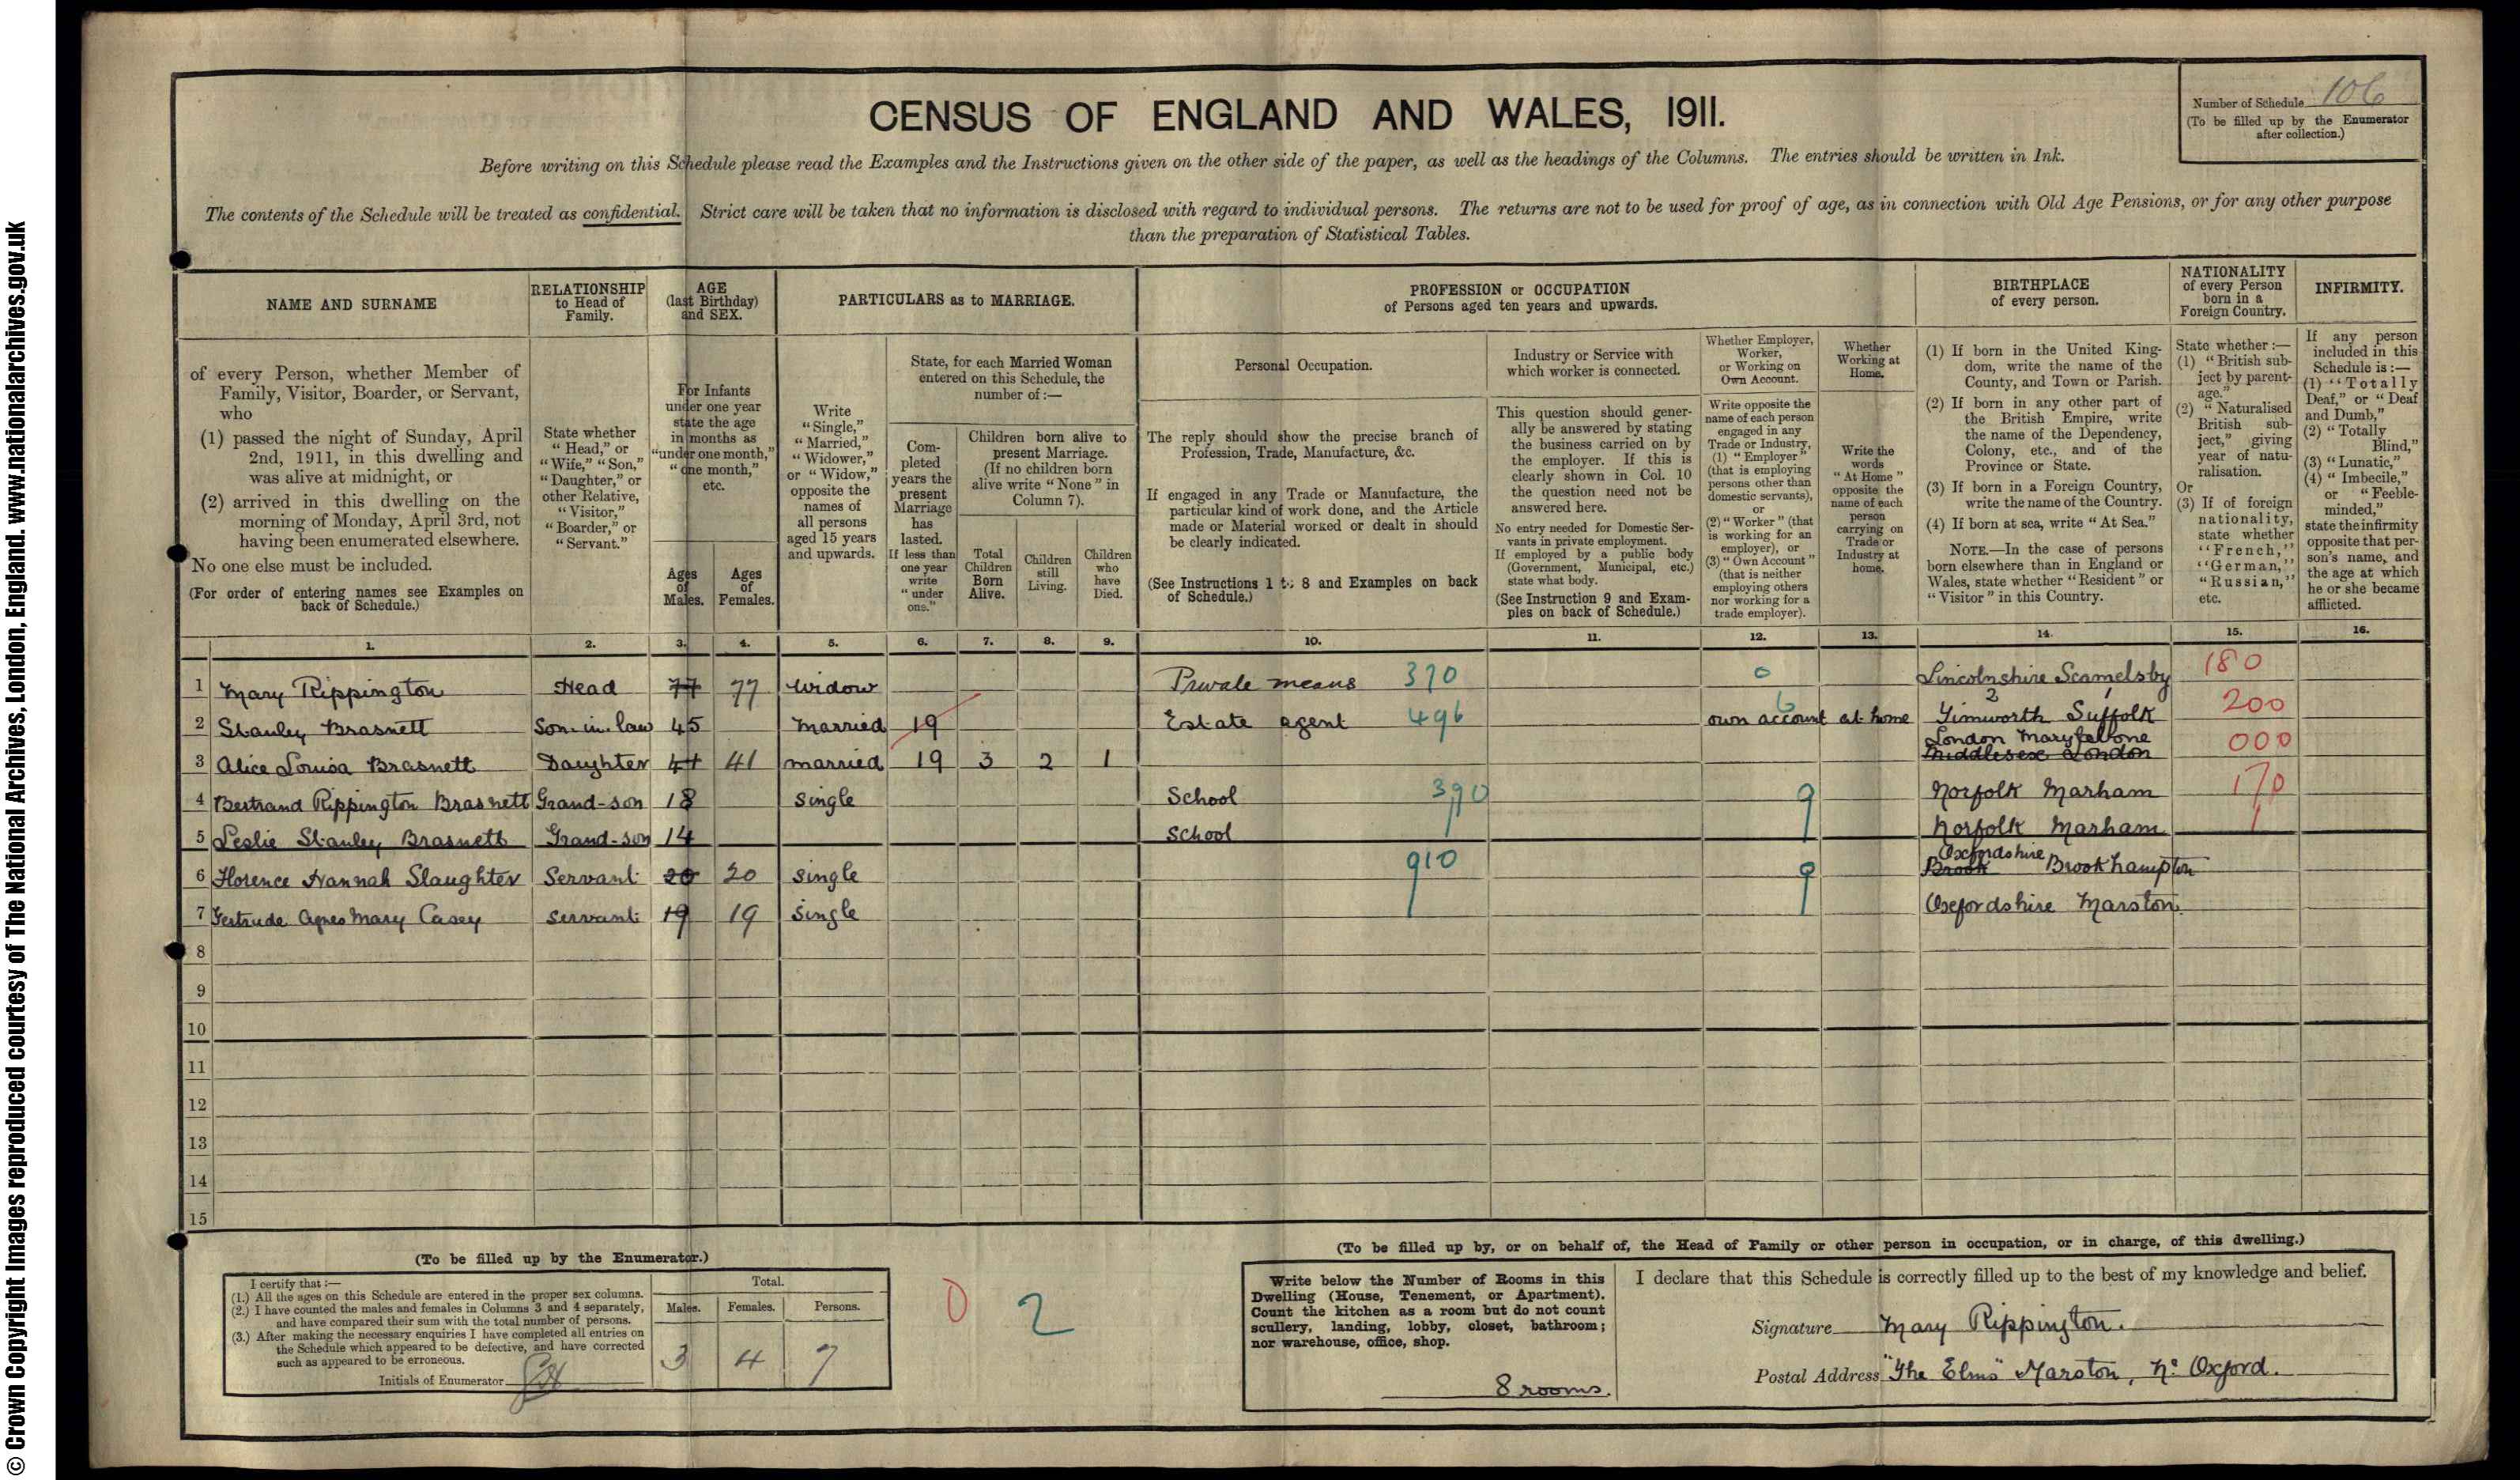 © Crown Copyright Images reproduced courtesy of The National Archives, London, England. www.nationalarchives.gov.uk
CENSUS OF ENGLAND AND WALES, 1911.
Number of Schedule 106
(To be filled up by the Enumerator
after collection.)
Before writing on this Schedule please read the Examples and the Instructions given on the other side of the paper, as well as the headings of the Columns. The entries should be written in Ink.
The contents of the Schedule will be treated as confidential. Strict care will be taken that no information is disclosed with regard to individual persons. The returns are not to be used for proof of age, as in connection with Old Age Pensions, or for any other purpose
than the preparation of Statistical Tables.
NAME AND SURNAME
of every Person, whether Member of
Family, Visitor, Boarder, or Servant,
who
(1) passed the night of Sunday, April
2nd, 1911, in this dwelling and
was alive at midnight, or
(2) arrived in this dwelling on the
morning of Monday, April 3rd, not
having been enumerated elsewhere.
No one else must be included.
(For order of entering names see Examples on
back of Schedule.)
RELATIONSHIP
to Head of
Family.
State whether
"Head," or
"Wife," "Son,"
"Daughter," or
other Relative,
"Visitor,"
"Boarder," or
"Servant."
AGE
(last Birthday)
and SEX.
For Infants
under one year
state the age
in months as
"under one month,"
"one month,"
etc.
Ages
of
Males.
Ages
of
Females.
PARTICULARS as to MARRIAGE.
Write
"Single,"
"Married,"
"Widower,"
or "Widow,"
opposite the
names of
all persons
aged 15 years
and upwards.
State, for each Married Woman
entered on this Schedule, the
number of:—
Com-
pleted
years the
present
Marriage
has
lasted.
If less than
one year
write
"under
one."
Children born alive to
present Marriage.
(If no children born
alive write "None" in
Column 7).
Total
Children
Born
Alive.
Children
still
Living.
Children
who
have
Died.
PROFESSION or OCCUPATION
of Persons aged ten years and upwards.
Personal Occupation.
The reply should show the precise branch of
Profession, Trade, Manufacture, &c.
If engaged in any Trade or Manufacture, the
particular kind of work done, and the Article
made or Material worked or dealt in should
be clearly indicated.
(See Instructions 1 to 8 and Examples on back
of Schedule.)
Industry or Service with
which worker is connected.
This question should gener-
ally be answered by stating
the business carried on by
the employer. If this is
clearly shown in Col. 10
the question need not be
answered here.
No entry needed for Domestic Ser-
vants in private employment.
If employed by a public body
(Government, Municipal, etc.)
state what body.
(See Instruction 9 and Exam-
ples on back of Schedule.)
Whether Employer,
Worker,
or Working on
Own Account.
Write opposite the
name of each person
engaged in any
Trade or Industry,
(1) "Employer"
(that is employing
persons other than
domestic servants),
or
(2) "Worker" (that
is working for an
employer), or
(3) "Own Account"
(that is neither
employing others
nor working for a
trade employer).
Whether
Working at
Home.
Write the
words
"At Home"
opposite the
name of each
person
carrying on
Trade or
Industry at
home.
BIRTHPLACE
of every person.
(1) If born in the United King-
dom, write the name of the
County, and Town or Parish.
(2) If born in any other part of
the British Empire, write
the name of the Dependency,
Colony, etc., and of the
Province or State.
(3) If born in a Foreign Country,
write the name of the Country.
(4) If born at sea, write "At Sea."
NOTE.—In the case of persons
born elsewhere than in England or
Wales, state whether "Resident" or
"Visitor" in this Country.
NATIONALITY
of every Person
born in a
Foreign Country.
State whether :—
(1) "British sub-
ject by parent-
age."
(2) "Naturalised
British sub-
ject," giving
year of natu-
ralisation.
Or
(3) If of foreign
nationality,
state whether
"French,"
"German,"
"Russian,"
etc.
INFIRMITY.
If any person
included in this
Schedule is:—
(1) "Totally
Deaf," or "Deaf
and Dumb,"
(2) "Totally
Blind,"
(3) "Lunatic,"
(4) "Imbecile,"
or "Feeble-
minded,"
state the infirmity
opposite that per-
son's name, and
the age at which
he or she became
afflicted.
1. 2. 3. 4. 5. 6. 7. 8. 9. 10. 11. 12. 13. 14. 15. 16.
1 Mary Rippington Head 77 77 Widow Private means 370 0 Lincolnshire Scamelsby 180
2 Stanley Brasnett Son-in-law 45 Married 19 Estate agent 496 6 own account at home 2 Timworth Suffolk 200
London Marylebone
3 Alice Louisa Brasnett Daughter 41 41 married 19 3 2 1 Middlesex London 000
4 Bertrand Rippington Brasnett Grand-son 18 Single School 390 9 Norfolk Marham 170
5 Leslie Stanley Brasnett Grand-son 14 School Norfolk Marham
Oxfordshire
6 Florence Hannah Slaughter Servant 20 20 single 910 9 Brook Brookhampton
7 Gertrude Agnes Mary Casey Servant 19 19 Single Oxfordshire Marston
8
9
10
11
12
13
14
15
(To be filled up by the Enumerator.)
I certify that:—
(1.) All the ages on this Schedule are entered in the proper sex columns.
(2.) I have counted the males and females in Columns 3 and 4 separately,
and have compared their sum with the total number of persons.
(3.) After making the necessary enquiries I have completed all entries on
the Schedule which appeared to be defective, and have corrected
such as appeared to be erroneous.
Initials of Enumerator
Total.
Males. Females. Persons.
3 4 7
0 2
(To be filled up by, or on behalf of, the Head of Family or other person in occupation, or in charge, of this dwelling.)
Write below the Number of Rooms in this
Dwelling (House, Tenement, or Apartment).
Count the kitchen as a room but do not count
scullery, landing, lobby, closet, bathroom;
nor warehouse, office, shop.
8 rooms.
I declare that this Schedule is correctly filled up to the best of my knowledge and belief.
Signature Mary Rippington.
Postal Address "The Elms" Marston, Nr Oxford.